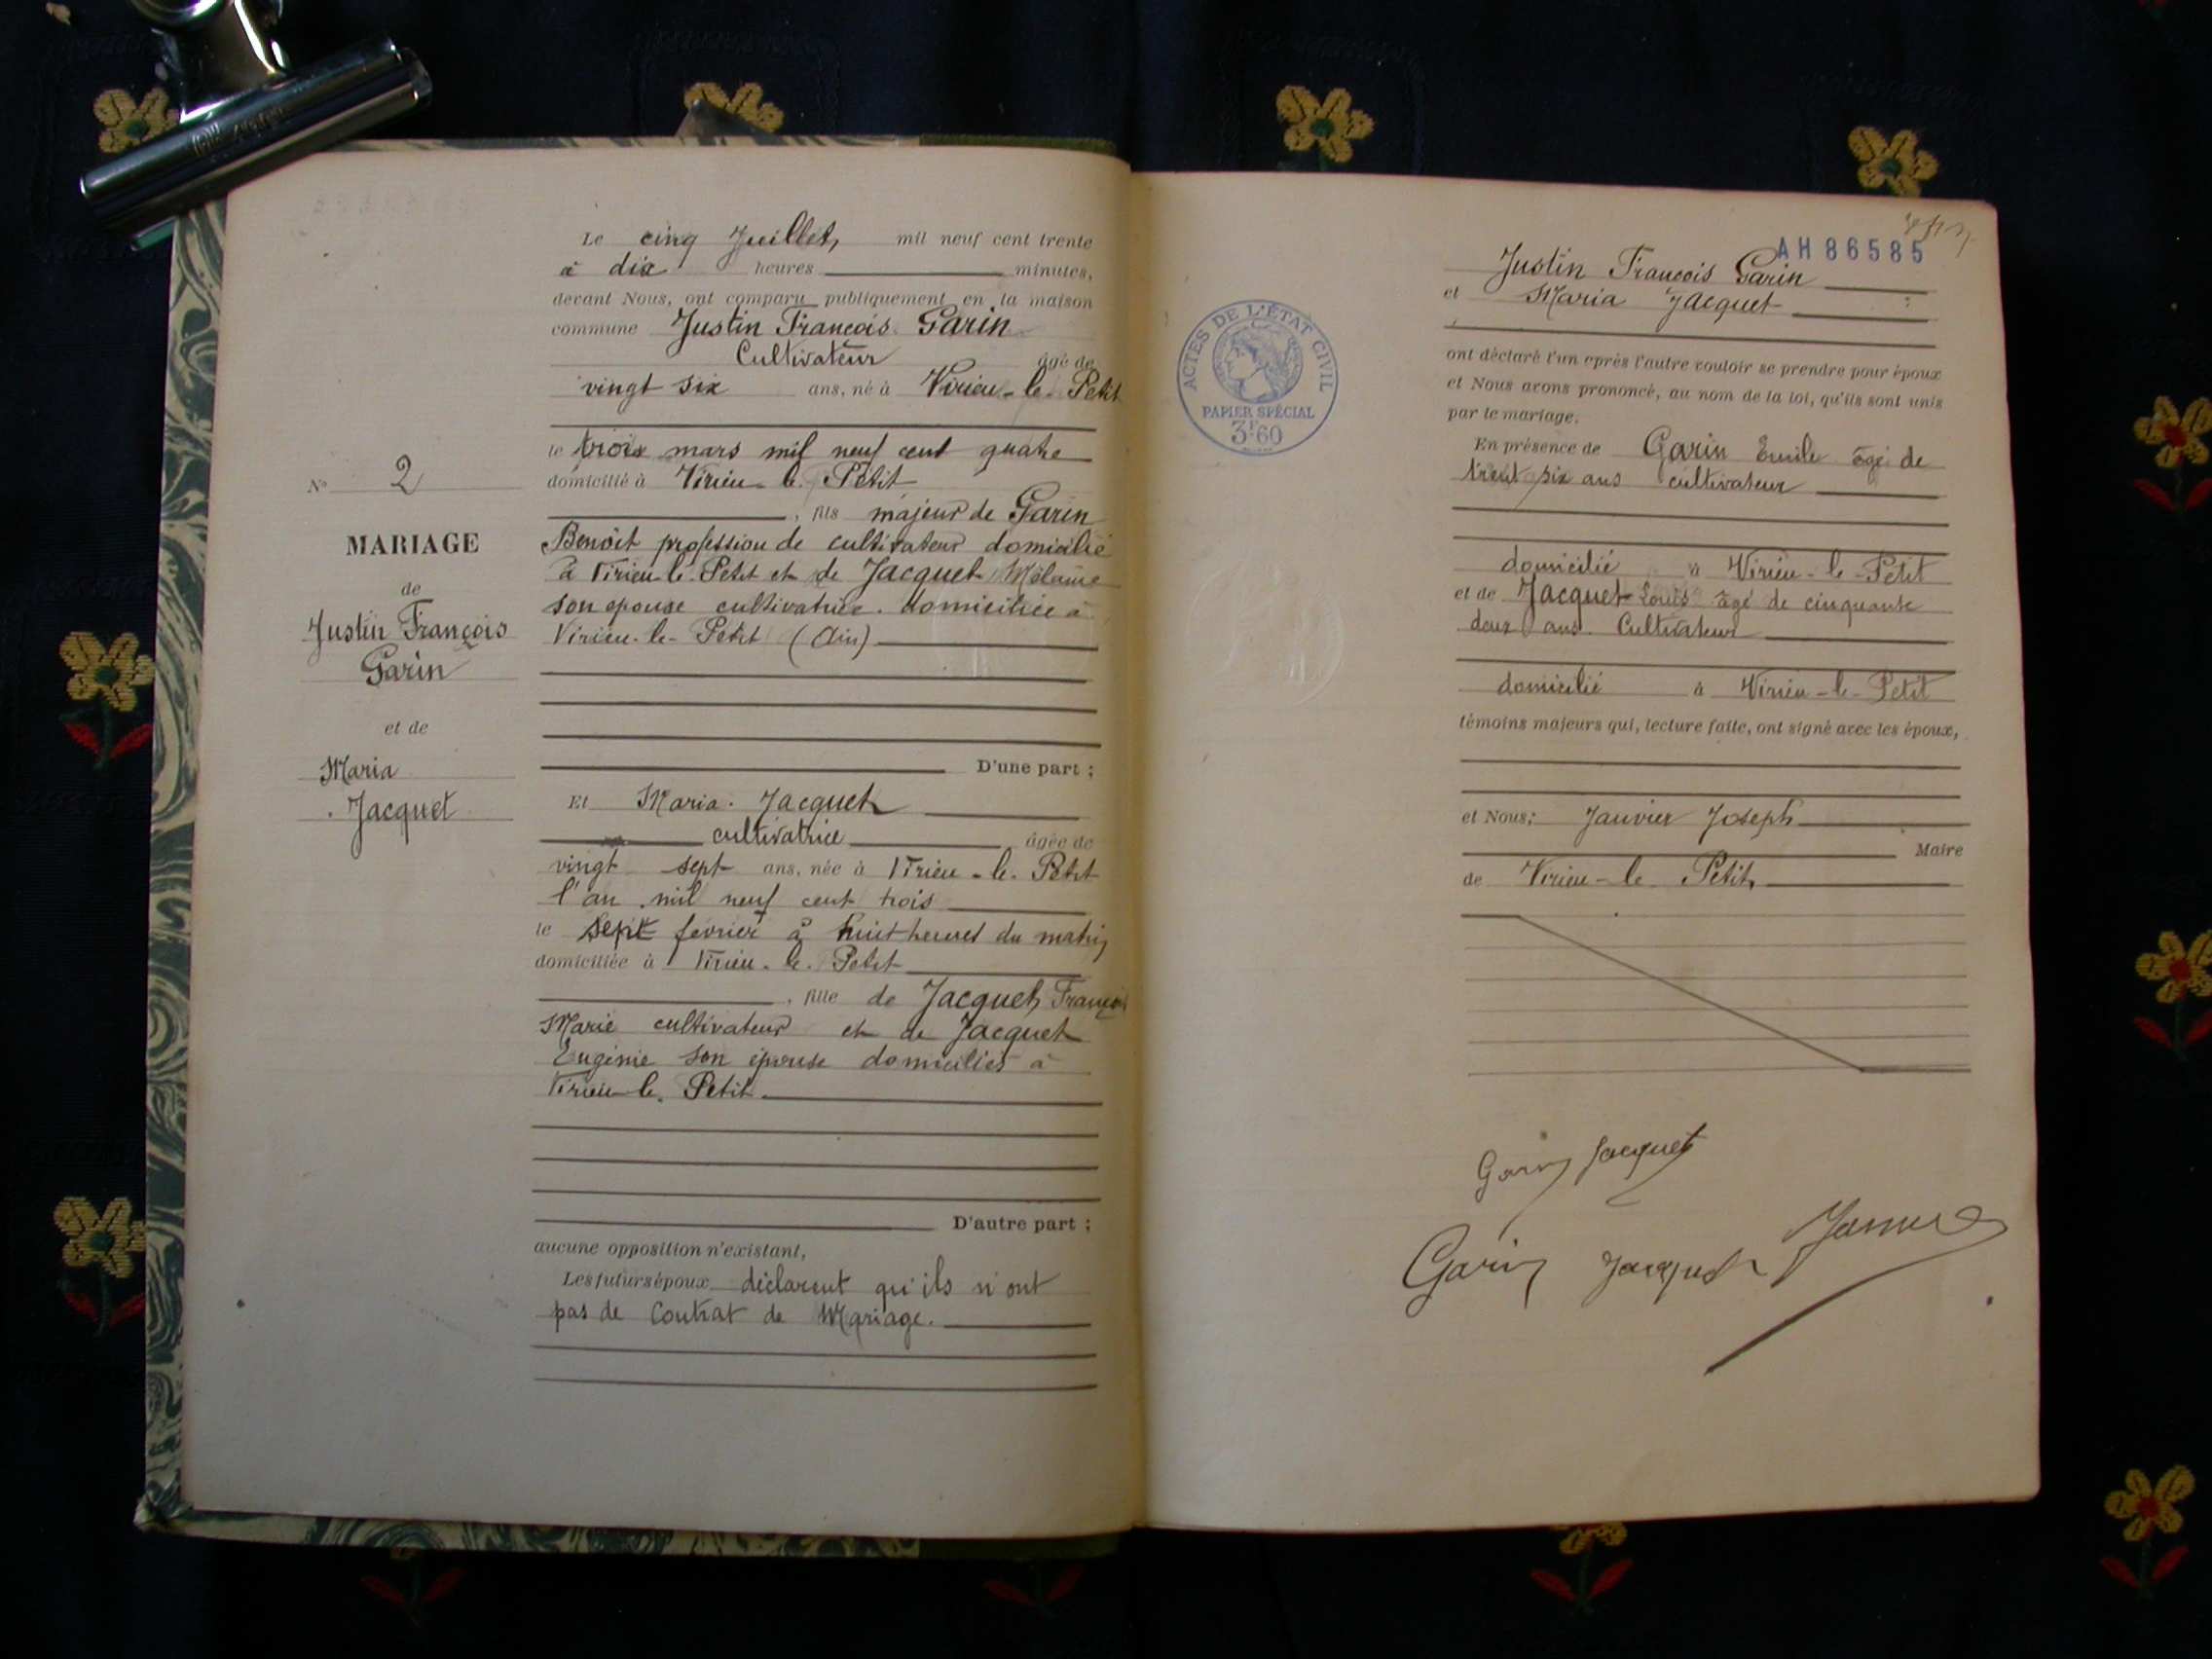 Le cinq Juillet, mil neuf cent trente
à dix heures minutes,
devant Nous, ont comparu publiquement en la maison
commune Justin François Garin
Cultivateur âgé de
vingt six ans, né à Virieu-le-Petit
le trois mars mil neuf cent quatre
domicilié à Virieu-le-Petit
, fils majeur de Garin
Benoit profession de cultivateur domicilié
à Virieu-le-Petit et de Jacquet Mélanie
son epouse cultivatrice. domiciliée à
Virieu-le-Petit (Ain)
D'une part ;
N° 2
MARIAGE
de
Justin François
Garin
et de
Maria
Jacquet
Et Maria Jacquet
cultivatrice âgée de
vingt sept ans, née à Virieu-le-Petit
l'an mil neuf cent trois
le sept février à huit heures du matin
domiciliée à Virieu-le-Petit
, fille de Jacquet François
Marie cultivateur et de Jacquet
Eugénie son épouse domiciliés à
Virieu-le-Petit
D'autre part ;
aucune opposition n'existant,
Les futurs époux déclarent qu'ils n'ont
pas de Contrat de Mariage.
AH 86585
Justin François Garin
et Maria Jacquet
ACTES DE L'ÉTAT CIVIL
PAPIER SPÉCIAL
3F60
ont déclaré l'un après l'autre vouloir se prendre pour époux
et Nous avons prononcé, au nom de la loi, qu'ils sont unis
par le mariage.
En présence de Garin Emile âgé de
trent six ans cultivateur
domicilié à Virieu-le-Petit
et de Jacquet Louis âgé de cinquante
deux ans. Cultivateur
domicilié à Virieu-le-Petit
témoins majeurs qui, lecture faite, ont signé avec les époux,
et Nous: Janvier Joseph
Maire
de Virieu-le-Petit
Garin Jacquet
Garin Jacquet Janvier